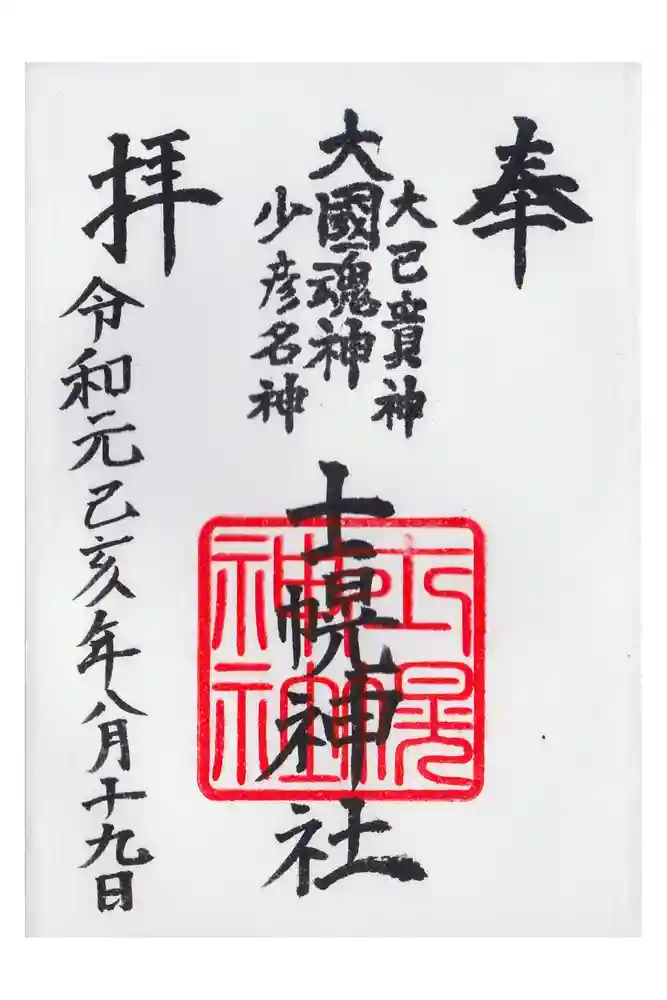 奉
大己貴神
大國魂神
少彦名神
士幌神社
士幌神社
拝
令和元己亥年八月十九日